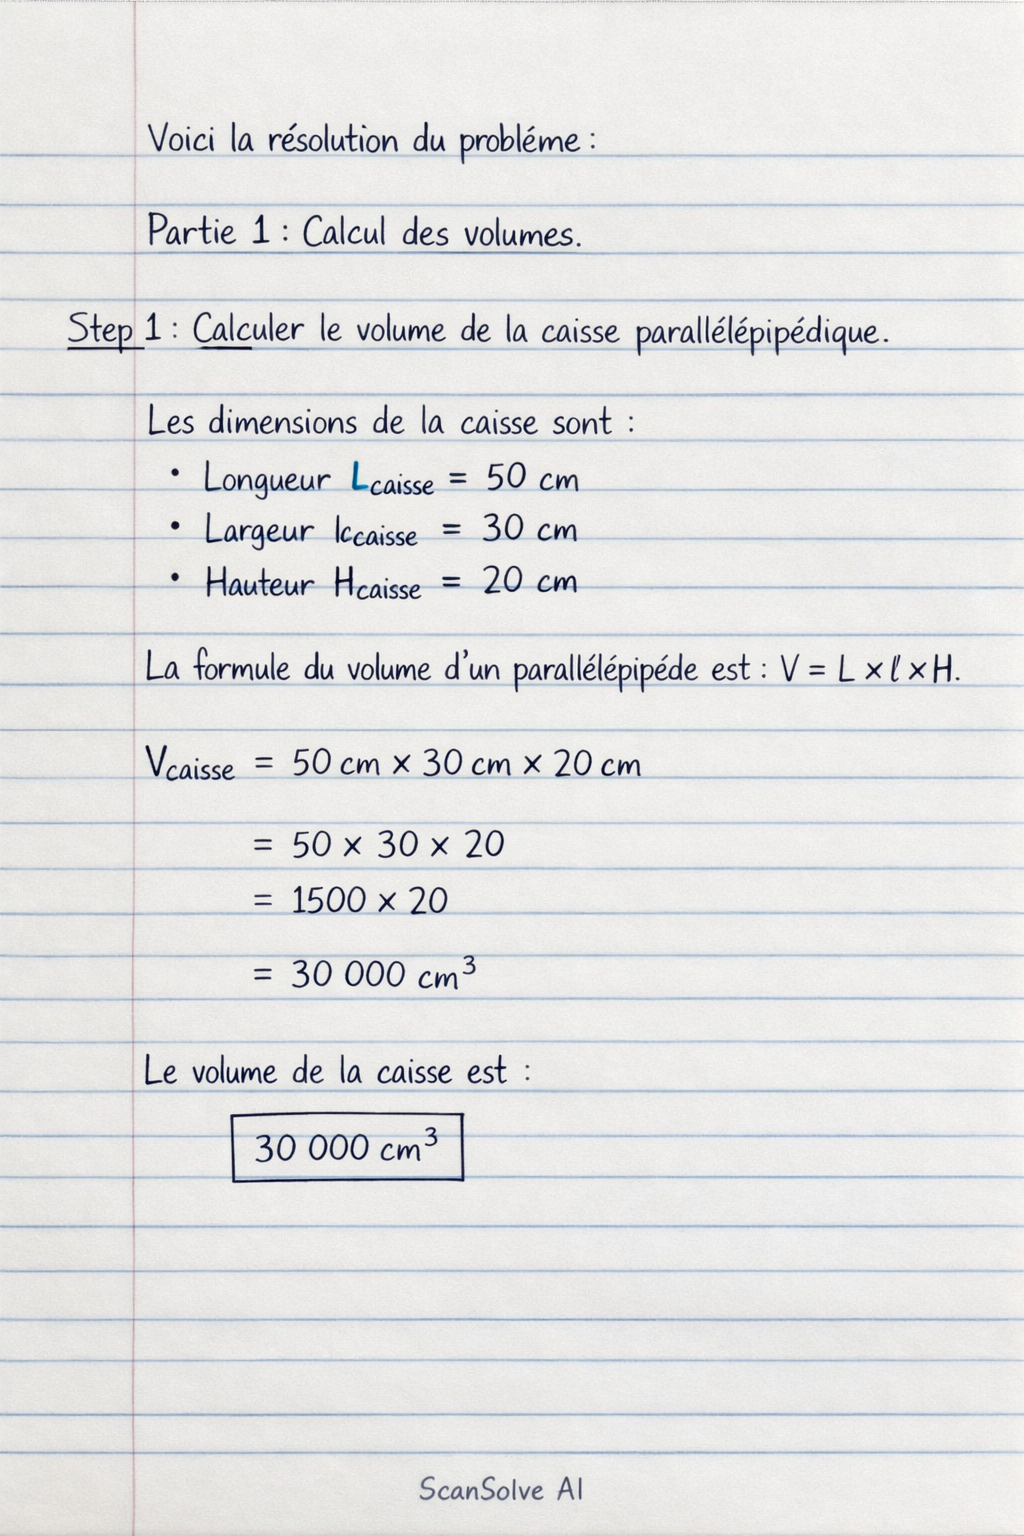 Voici la résolution du probléme :
Partie 1 : Calcul des volumes.
Step 1 : Calculer le volume de la caisse parallélépipédique.
Les dimensions de la caisse sont :
• Longueur Lcaisse = 50 cm
• Largeur lccaisse = 30 cm
• Hauteur Hcaisse = 20 cm
La formule du volume d'un parallélépipéde est : V = L × l × H.
Vcaisse = 50 cm × 30 cm × 20 cm
= 50 × 30 × 20
= 1500 × 20
= 30 000 cm³
Le volume de la caisse est :
30 000 cm³
ScanSolve AI